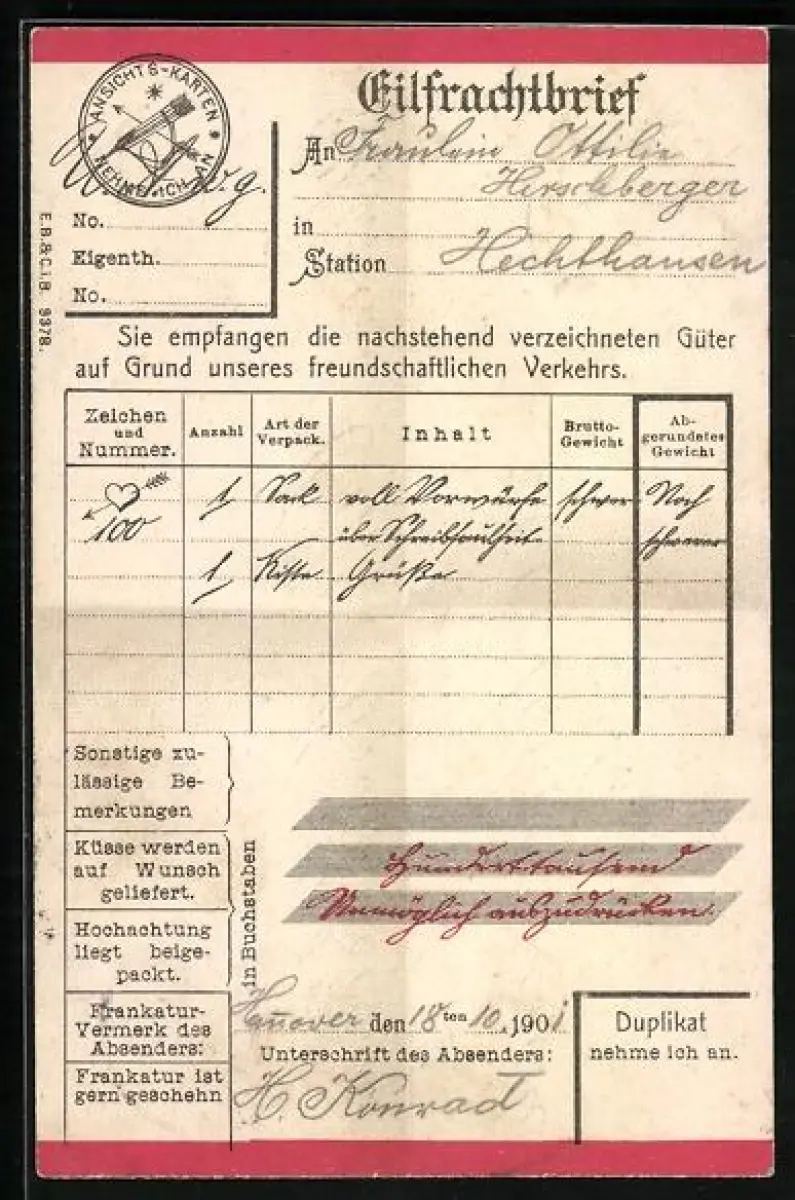 Eilfrachtbrief
ANSICHTS-KARTEN
NEHME ICH AN
An Fräulein Ottilie
Herschberger
in
Station Hechthausen
No.
Eigenth.
No.
E.B.&C.i.B. 9378.
Sie empfangen die nachstehend verzeichneten Güter
auf Grund unseres freundschaftlichen Verkehrs.
Zeichen und Nummer. Anzahl Art der Verpack. Inhalt Brutto-Gewicht Ab-gerundetes Gewicht
1 Sack voll Vorwürfe schwer Noch
100 über Schreibfaulheit schwerer
1 Kiste Grüße
Sonstige zu-
lässige Be-
merkungen
Küsse werden
auf Wunsch
geliefert.
Hochachtung
liegt beige-
packt.
in Buchstaben
Hunderttausend
Unmöglich auszudrücken.
Frankatur-
Vermerk des
Absenders:
Frankatur ist
gern geschehn
Hannover den 18ten 10. 1901
Unterschrift des Absenders:
H. Konrad
Duplikat
nehme ich an.